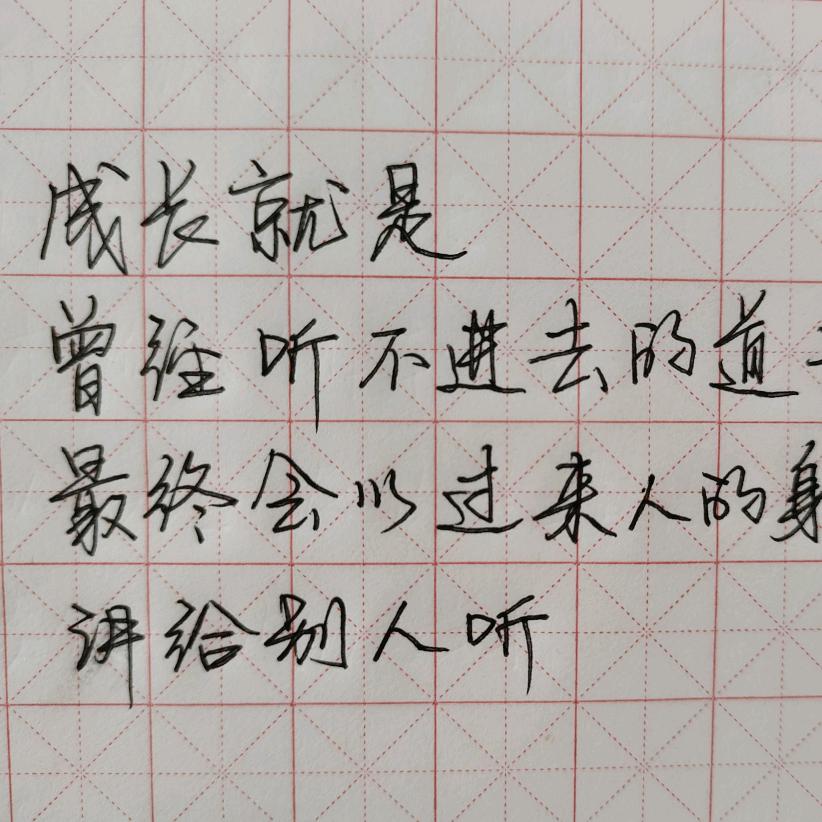 成长就是
曾经听不进去的道
最终会以过来人的身
讲给别人听